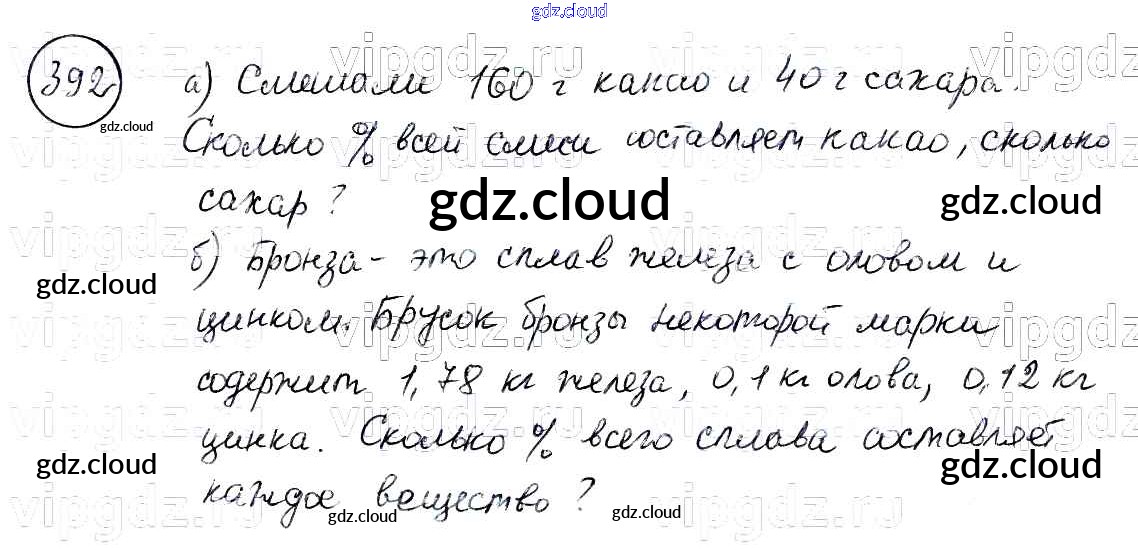 gdz.cloud
392 а) Смешали 160 г какао и 40 г сахара.
gdz.cloud
Сколько % всей смеси составляет какао, сколько
сахар?
gdz.cloud
gdz.cloud
б) Бронза - это сплав железа с оловом и
gdz.cloud
цинком. Брусок бронзы некоторой марки
содержит 1,78 кг железа, 0,1 кг олова, 0,12 кг
цинка. Сколько % всего сплава составляет
gdz.cloud
gdz.cloud
каждое вещество?
gdz.cloud
gdz.cloud
vipgdz.ru vipgdz.ru vipgdz.ru